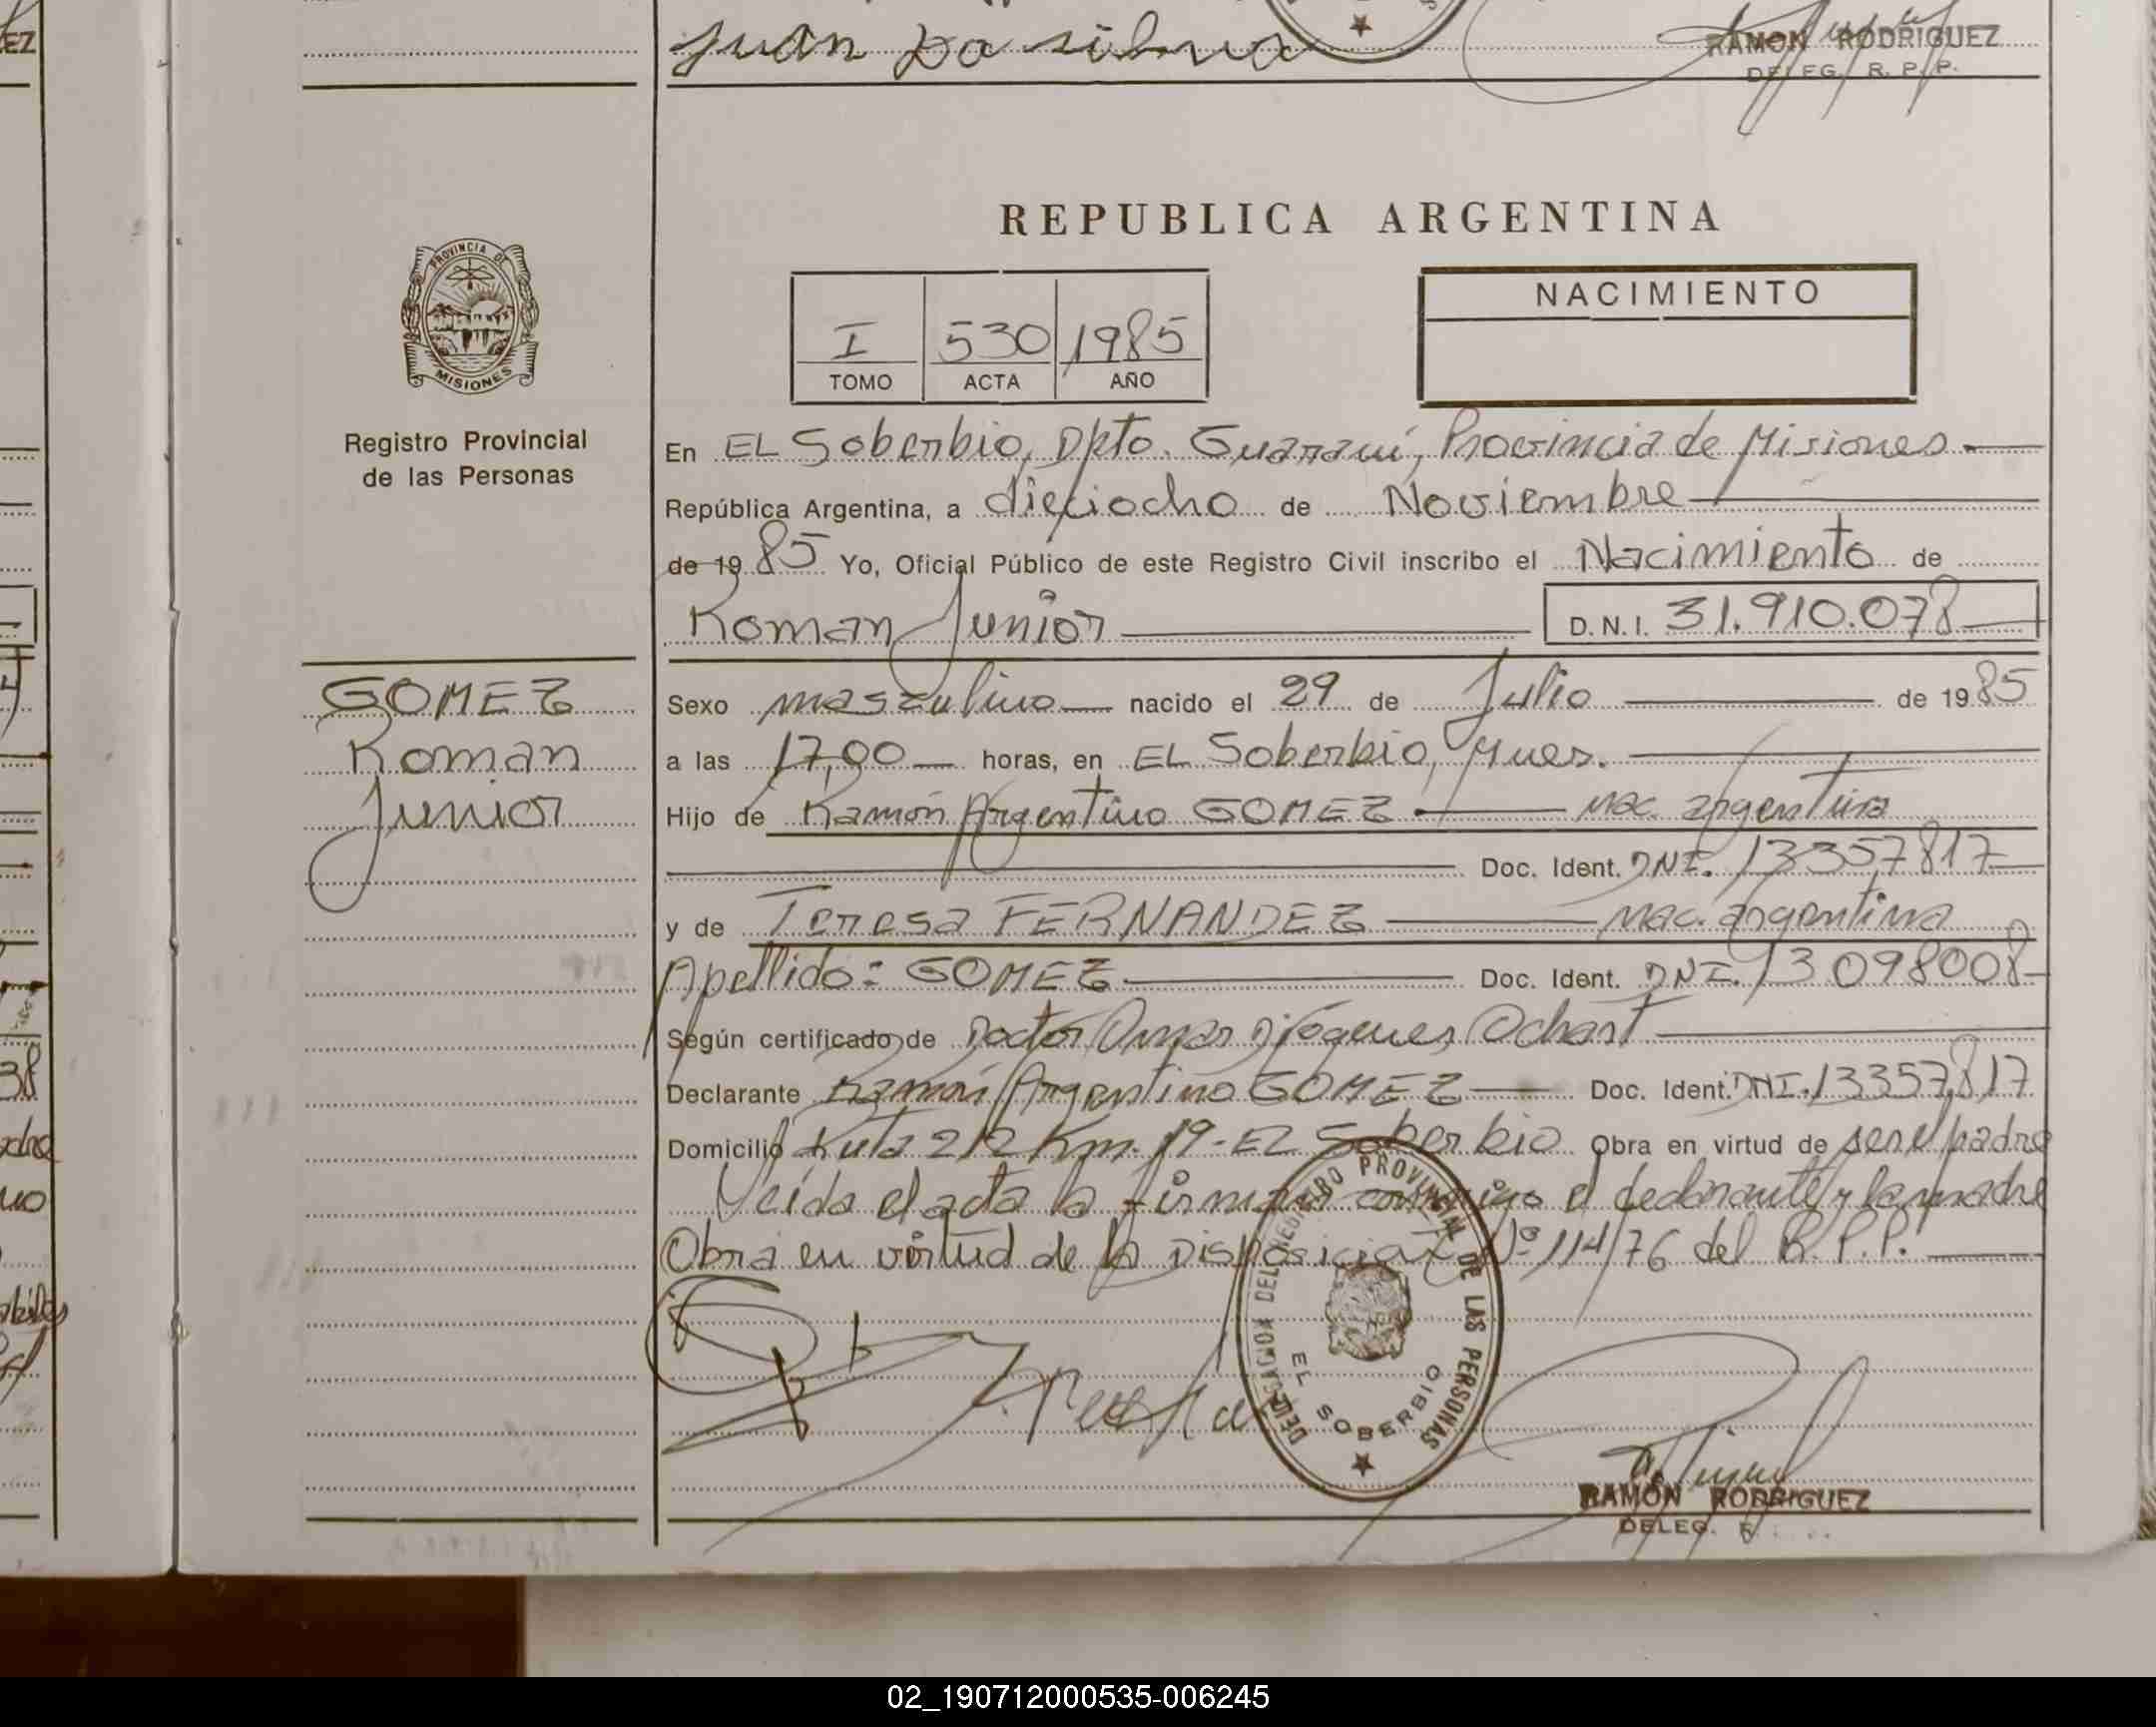 EZ
Juan Da silva
RAMON RODRIGUEZ
DELEG. R. P. P.
PROVINCIA DE
MISIONES
Registro Provincial
de las Personas
REPUBLICA ARGENTINA
I 530 1985
TOMO ACTA AÑO
NACIMIENTO
En EL Soberbio, Dpto. Guaraní, Provincia de Misiones.-
República Argentina, a dieciocho de Noviembre
de 19 85 Yo, Oficial Público de este Registro Civil inscribo el Nacimiento de
Roman Junior D. N. I. 31.910.078
GOMEZ
Roman
Junior
Sexo masculino nacido el 29 de Julio de 19 85
a las 17,00 horas, en EL Soberbio, Mnes.
Hijo de Ramón Argentino GOMEZ nac. argentina
Doc. Ident. DNI. 13357817
y de Teresa FERNANDEZ nac. argentina
Apellido: GOMEZ Doc. Ident. DNI. 13098008
Según certificado de Doctor Omar Diógenes Ochast
Declarante Ramón Argentino GOMEZ Doc. Ident. DNI. 13357817
Domicilio Ruta 212 Km. 19 - EL Soberbio Obra en virtud de ser el padre
Leída el acta la firman conmigo el declarante y la madre
Obra en virtud de la Disposición Nº 114/76 del R. P. P.
DELEGACION DEL REGISTRO PROVINCIAL DE LAS PERSONAS
EL SOBERBIO
RAMON RODRIGUEZ
DELEG. R
02_190712000535-006245